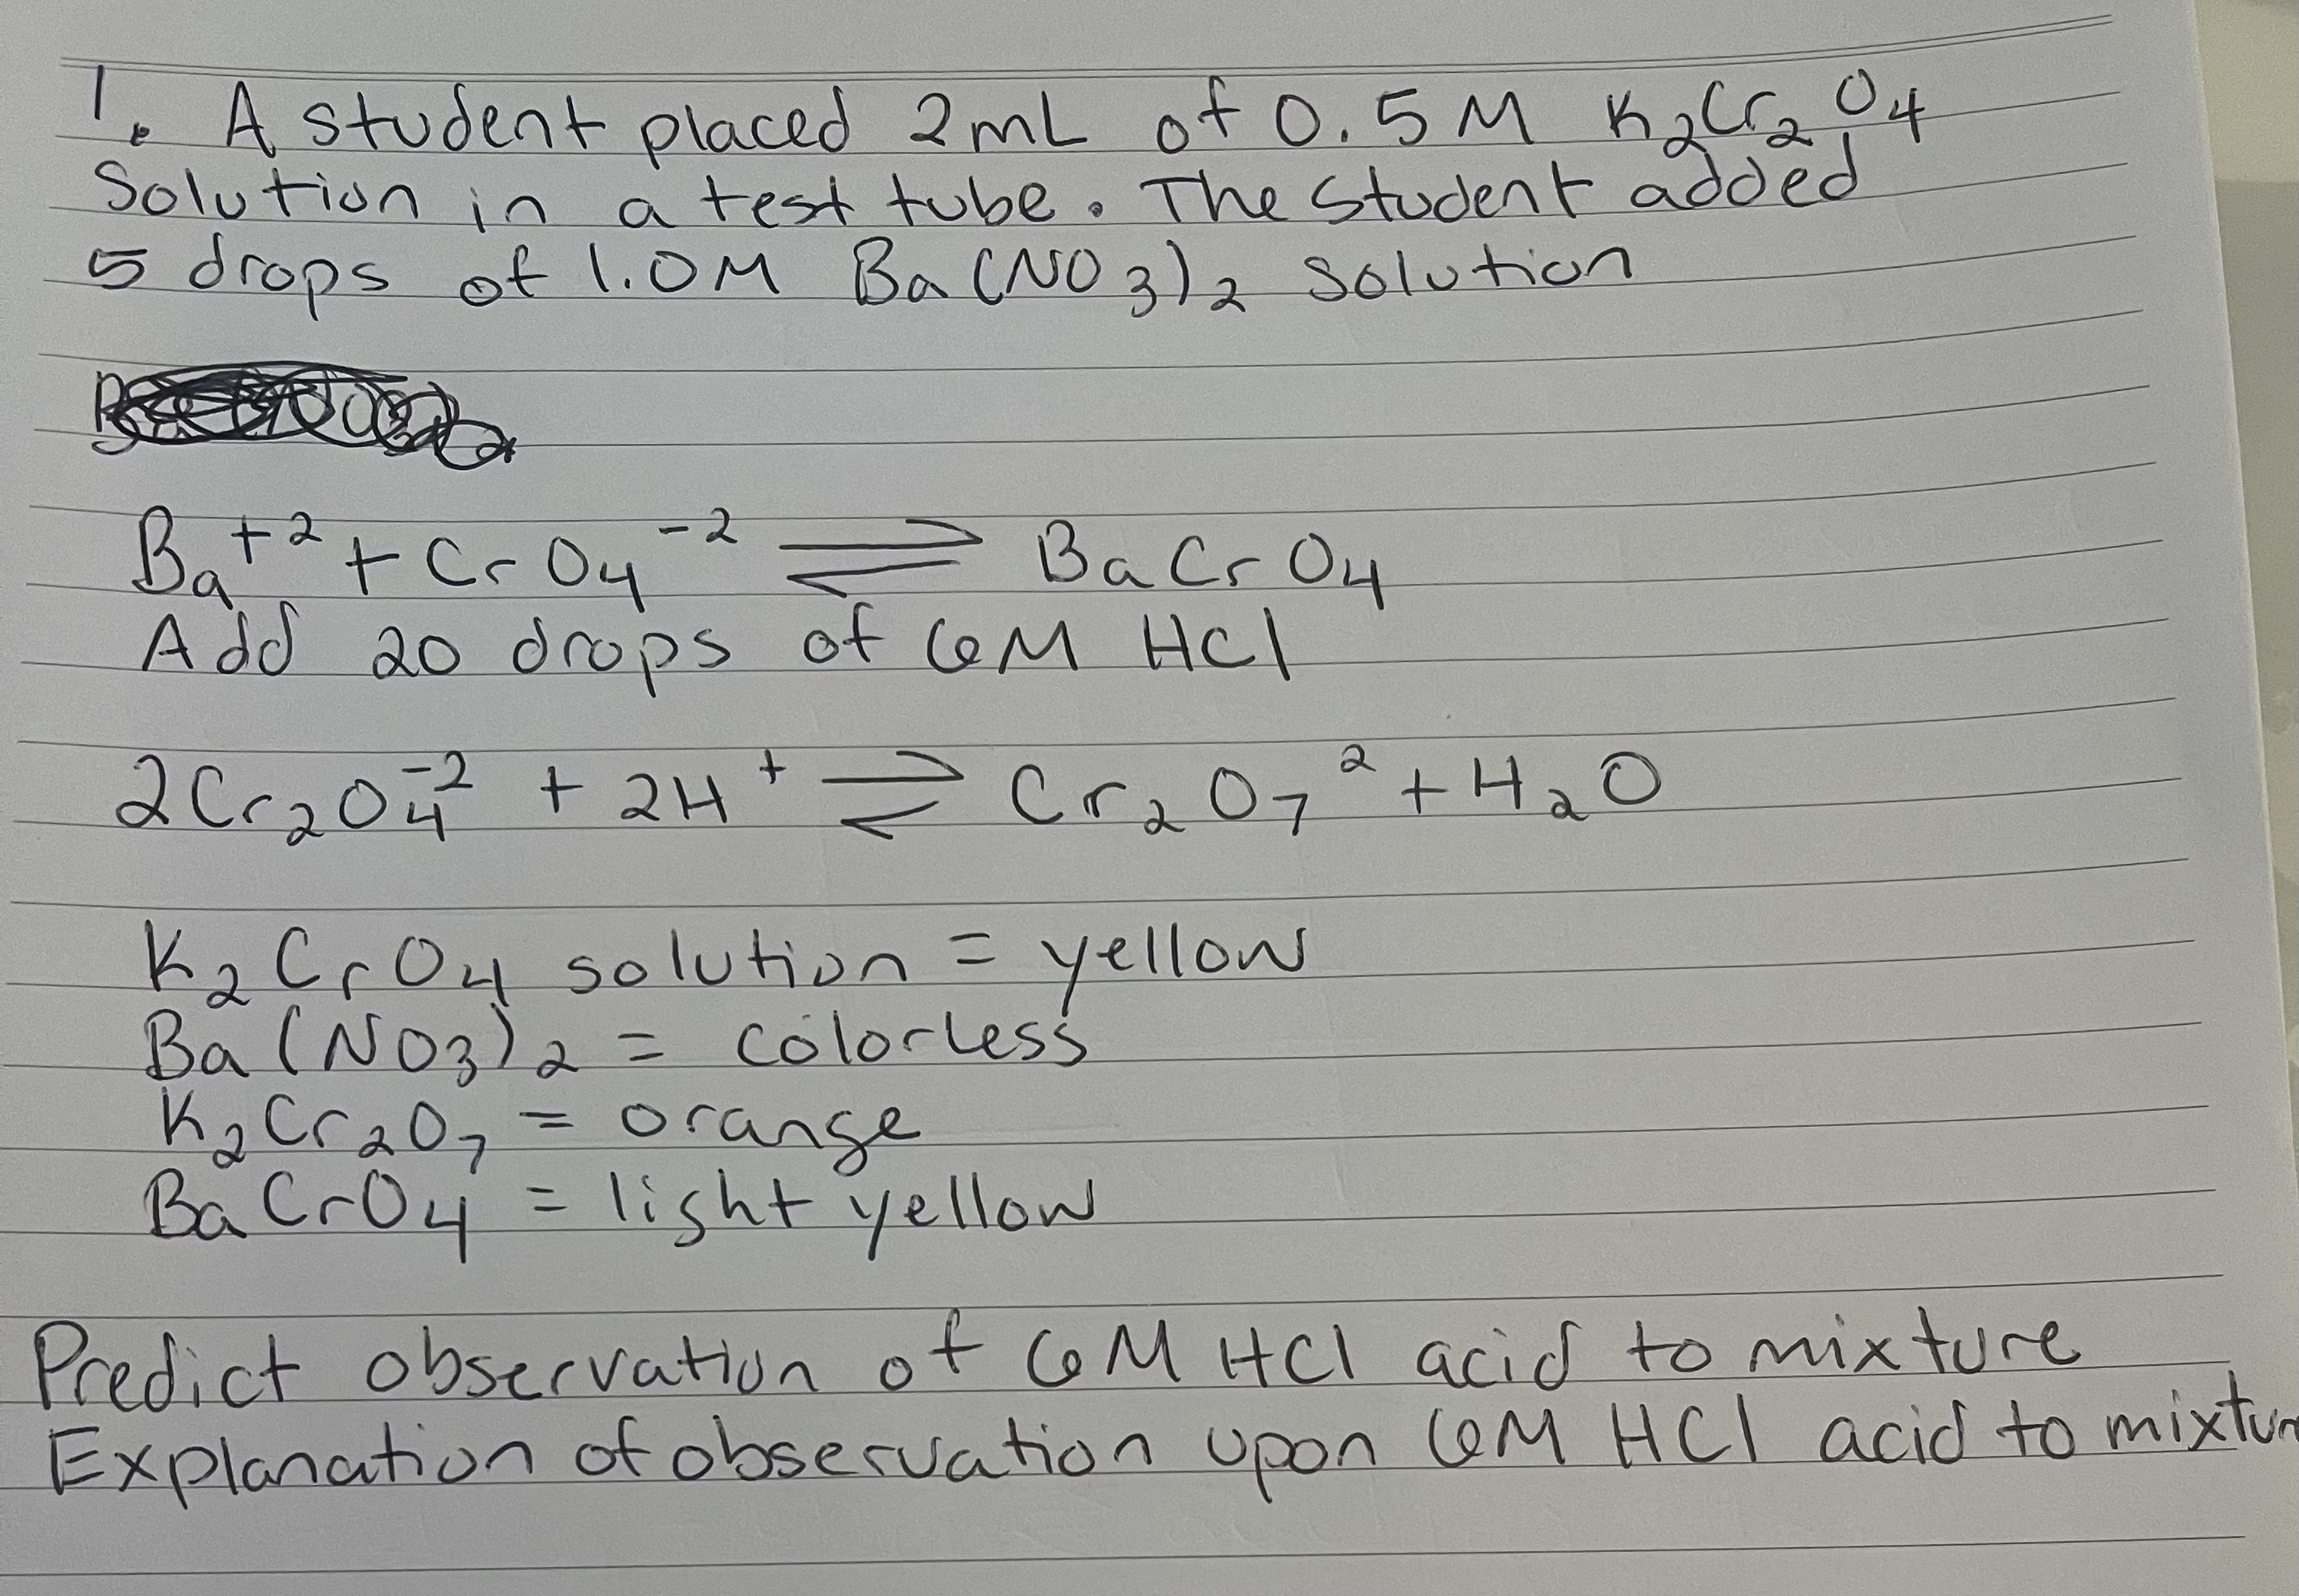 1. A student placed 2mL of 0.5M K₂Cr₂O₄
Solution in a test tube. The student added
5 drops of 1.0M Ba(NO₃)₂ solution
Ba⁺² + CrO₄⁻² ⇌ BaCrO₄
Add 20 drops of 6M HCl
2Cr₂O₄⁻² + 2H⁺ ⇌ Cr₂O₇² + H₂O
K₂CrO₄ solution = yellow
Ba(NO₃)₂ = colorless
K₂Cr₂O₇ = orange
BaCrO₄ = light yellow
Predict observation of 6M HCl acid to mixture
Explanation of observation upon 6M HCl acid to mixtur